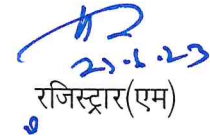 23.6.23
रजिस्ट्रार(एम)